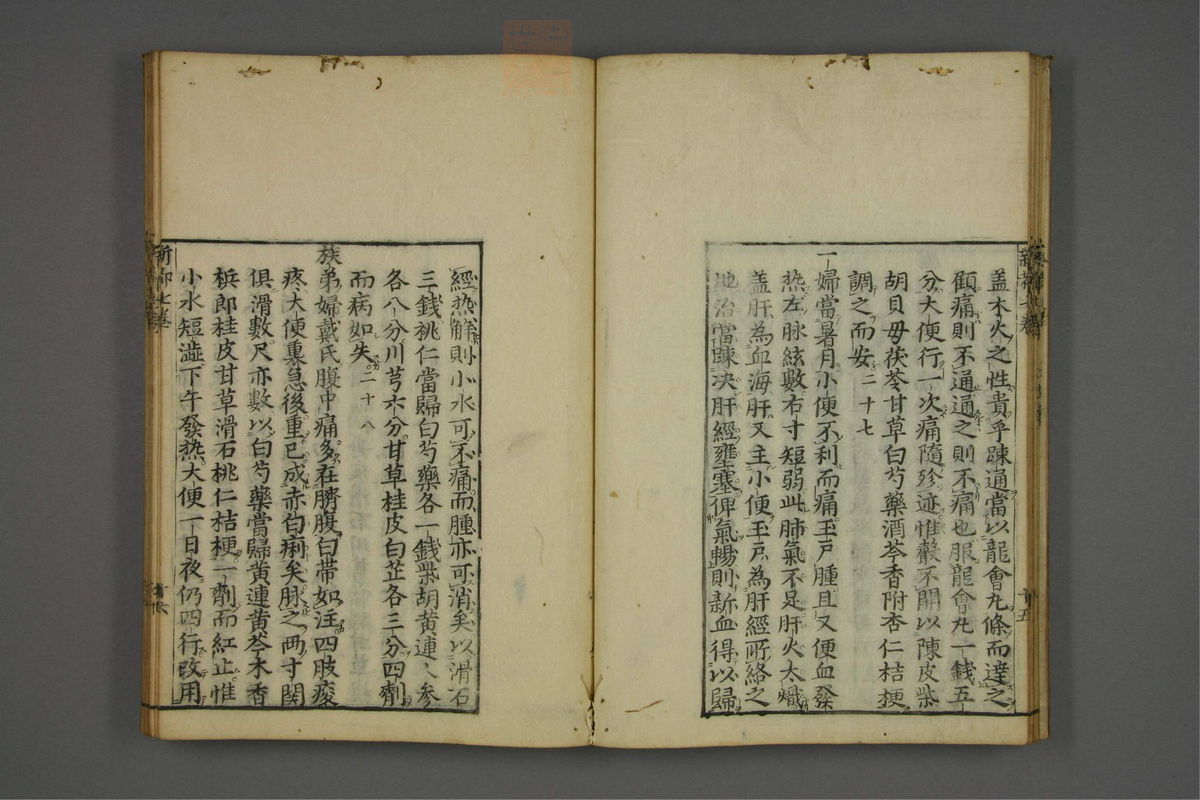 盖木火之性貴乎踈通當以龍會丸條而達之
顧痛則不通通之則不痛也服龍會丸一錢五
分大便行一次痛隨殄迹惟轂不開以陳皮柴
胡貝毋茯苓甘草白芍藥酒芩香附杏仁桔梗
調之而安二十七
一婦當暑月小便不利而痛玉戸腫且又便血發
热左脉絃數右寸短弱此肺氣不足肝火太熾
盖肝為血海肝又主小便玉戸為肝經所絡之
地治當踈决肝經壅塞俾氣暢則新血得以歸
經热解則小水可不痛而腫亦可消矣以滑石
三錢桃仁當歸白芍藥各一錢柴胡黄連人參
各八分川芎六分甘草桂皮白芷各三分四劑
而病如失二十八
族弟婦戴氏腹中痛多在臍腹白帶如注四肢痠
疼大便裏急後重已成赤白痢矣脉之两寸関
俱滑數尺亦數以白芍藥當歸黄連黄芩木香
梹郎桂皮甘草滑石桃仁桔梗一劑而紅止惟
小水短澁下午發热大便一日夜仍四行改用